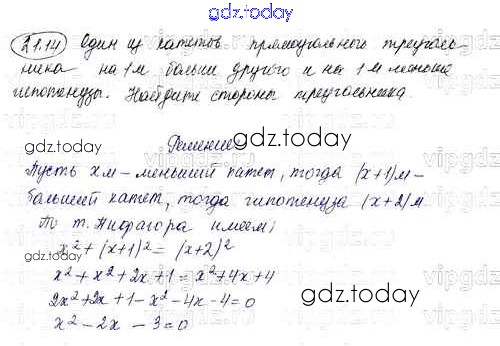 gdz.today
21.14 Один из катетов прямоугольного треуголь-
ника на 1 м больше другого и на 1 м меньше
гипотенузы. Найдите стороны треугольника.
Решение
gdz.today
Пусть х м - меньший катет, тогда (х+1) м -
больший катет, тогда гипотенуза (х+2) м
По т. Пифагора имеем;
х² + (х+1)² = (х+2)²
х² + х² + 2х + 1 = х² + 4х + 4
gdz.today
2х² + 2х + 1 - х² - 4х - 4 = 0
х² - 2х - 3 = 0